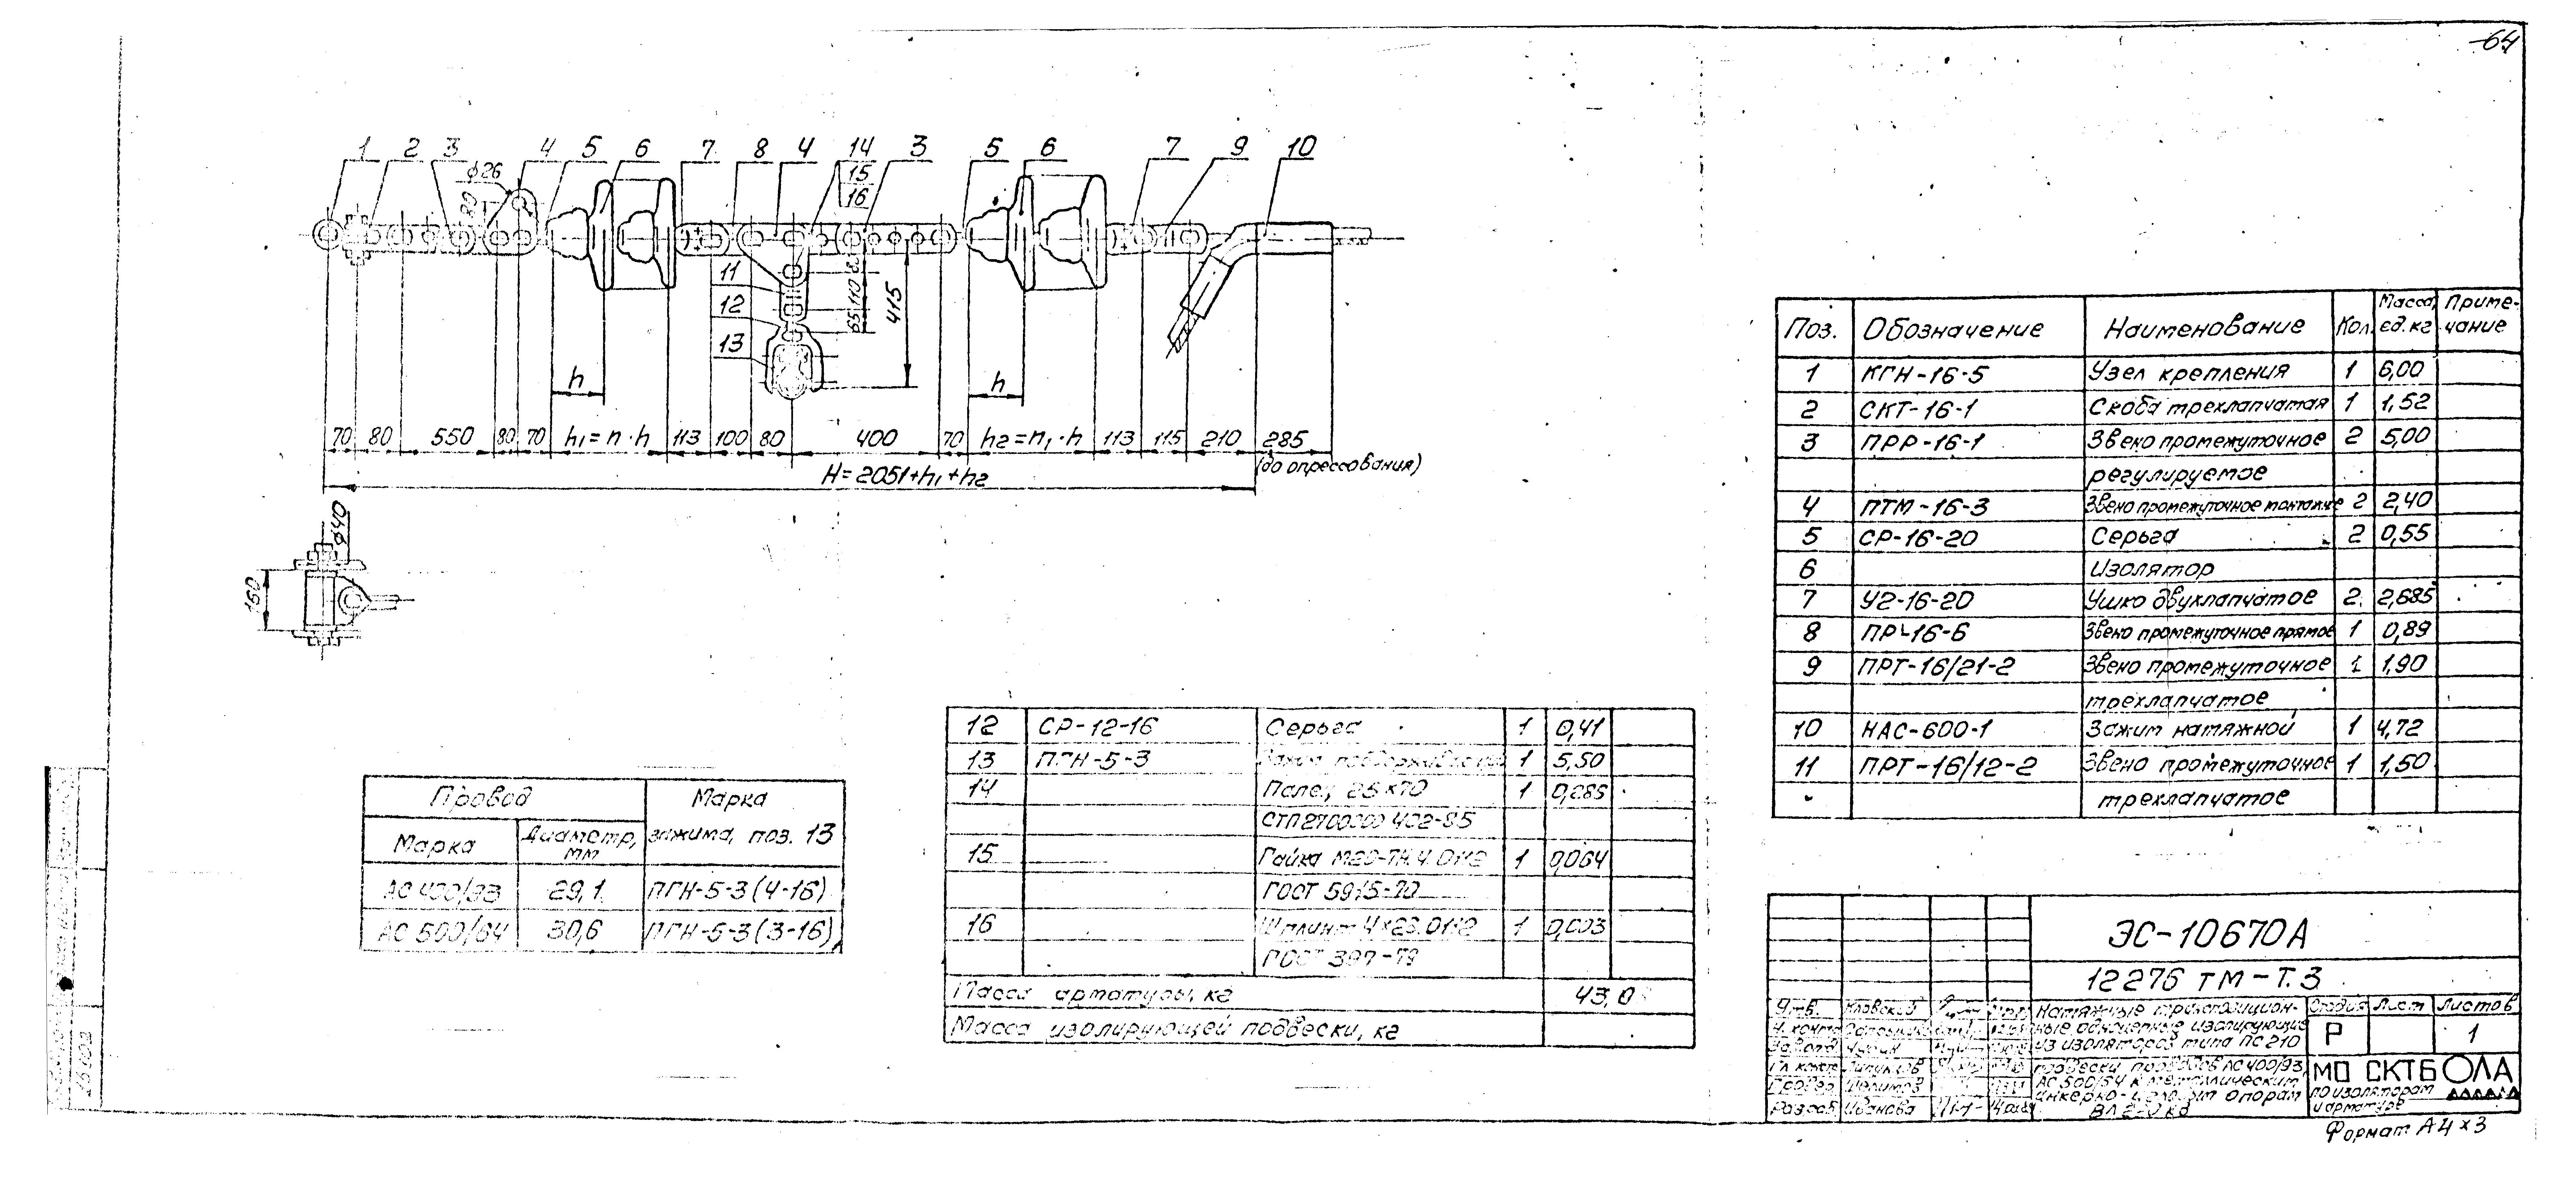 64
1 2 3 4 5 6 7 8 4 14 3 5 6 7 9 10
15
16
ф26
11
12
13
65 110 83
415
h h
70 80 550 80 70 h₁=n·h 113 100 80 400 70 h₂=n₁·h 113 115 210 285
(до опрессования)
H=2051+h₁+h₂
ф40
160
Поз. Обозначение Наименование Кол. Масса ед. кг Приме-чание
1 КГН-16-5 Узел крепления 1 6,00
2 СКТ-16-1 Скоба трехлапчатая 1 1,52
3 ПРР-16-1 Звено промежуточное 2 5,00
регулируемое
4 ПТМ-16-3 Звено промежуточное монтажное 2 2,40
5 СР-16-20 Серьга 2 0,55
6 Изолятор
7 У2-16-20 Ушко двухлапчатое 2 2,685
8 ПР-16-6 Звено промежуточное прямое 1 0,89
9 ПРТ-16/21-2 Звено промежуточное 1 1,90
трехлапчатое
10 НАС-600-1 Зажим натяжной 1 4,72
11 ПРТ-16/12-2 Звено промежуточное 1 1,50
трехлапчатое
12 СР-12-16 Серьга 1 0,41
13 ПГН-5-3 1 5,50
14 Палец 25×70 1 0,285
15 Гайка 1 0,064
ГОСТ 5915-70
16 Шплинт 1 0,003
ГОСТ 397-79
Масса арматуры, кг 43,0
Масса изолирующей подвески, кг
Провод Марка
Марка Диаметр, мм зажима, поз. 13
АС 400/93 29,1 ПГН-5-3 (4-16)
АС 500/64 30,6 ПГН-5-3 (3-16)
ЭС-10670А
12276 тм-Т.3
Утв.
Н. контр
Разраб Иванова
Натяжные транспозицион-
ные одноцепные изолирующие
из изоляторов типа ПС 210
подвески проводов АС 400/93,
АС 500/64 к металлическим
анкерно-угловым опорам
Стадия Лист Листов
Р 1
МО СКТБ ОЛА
по изоляторам
и арматуре
Формат А4×3